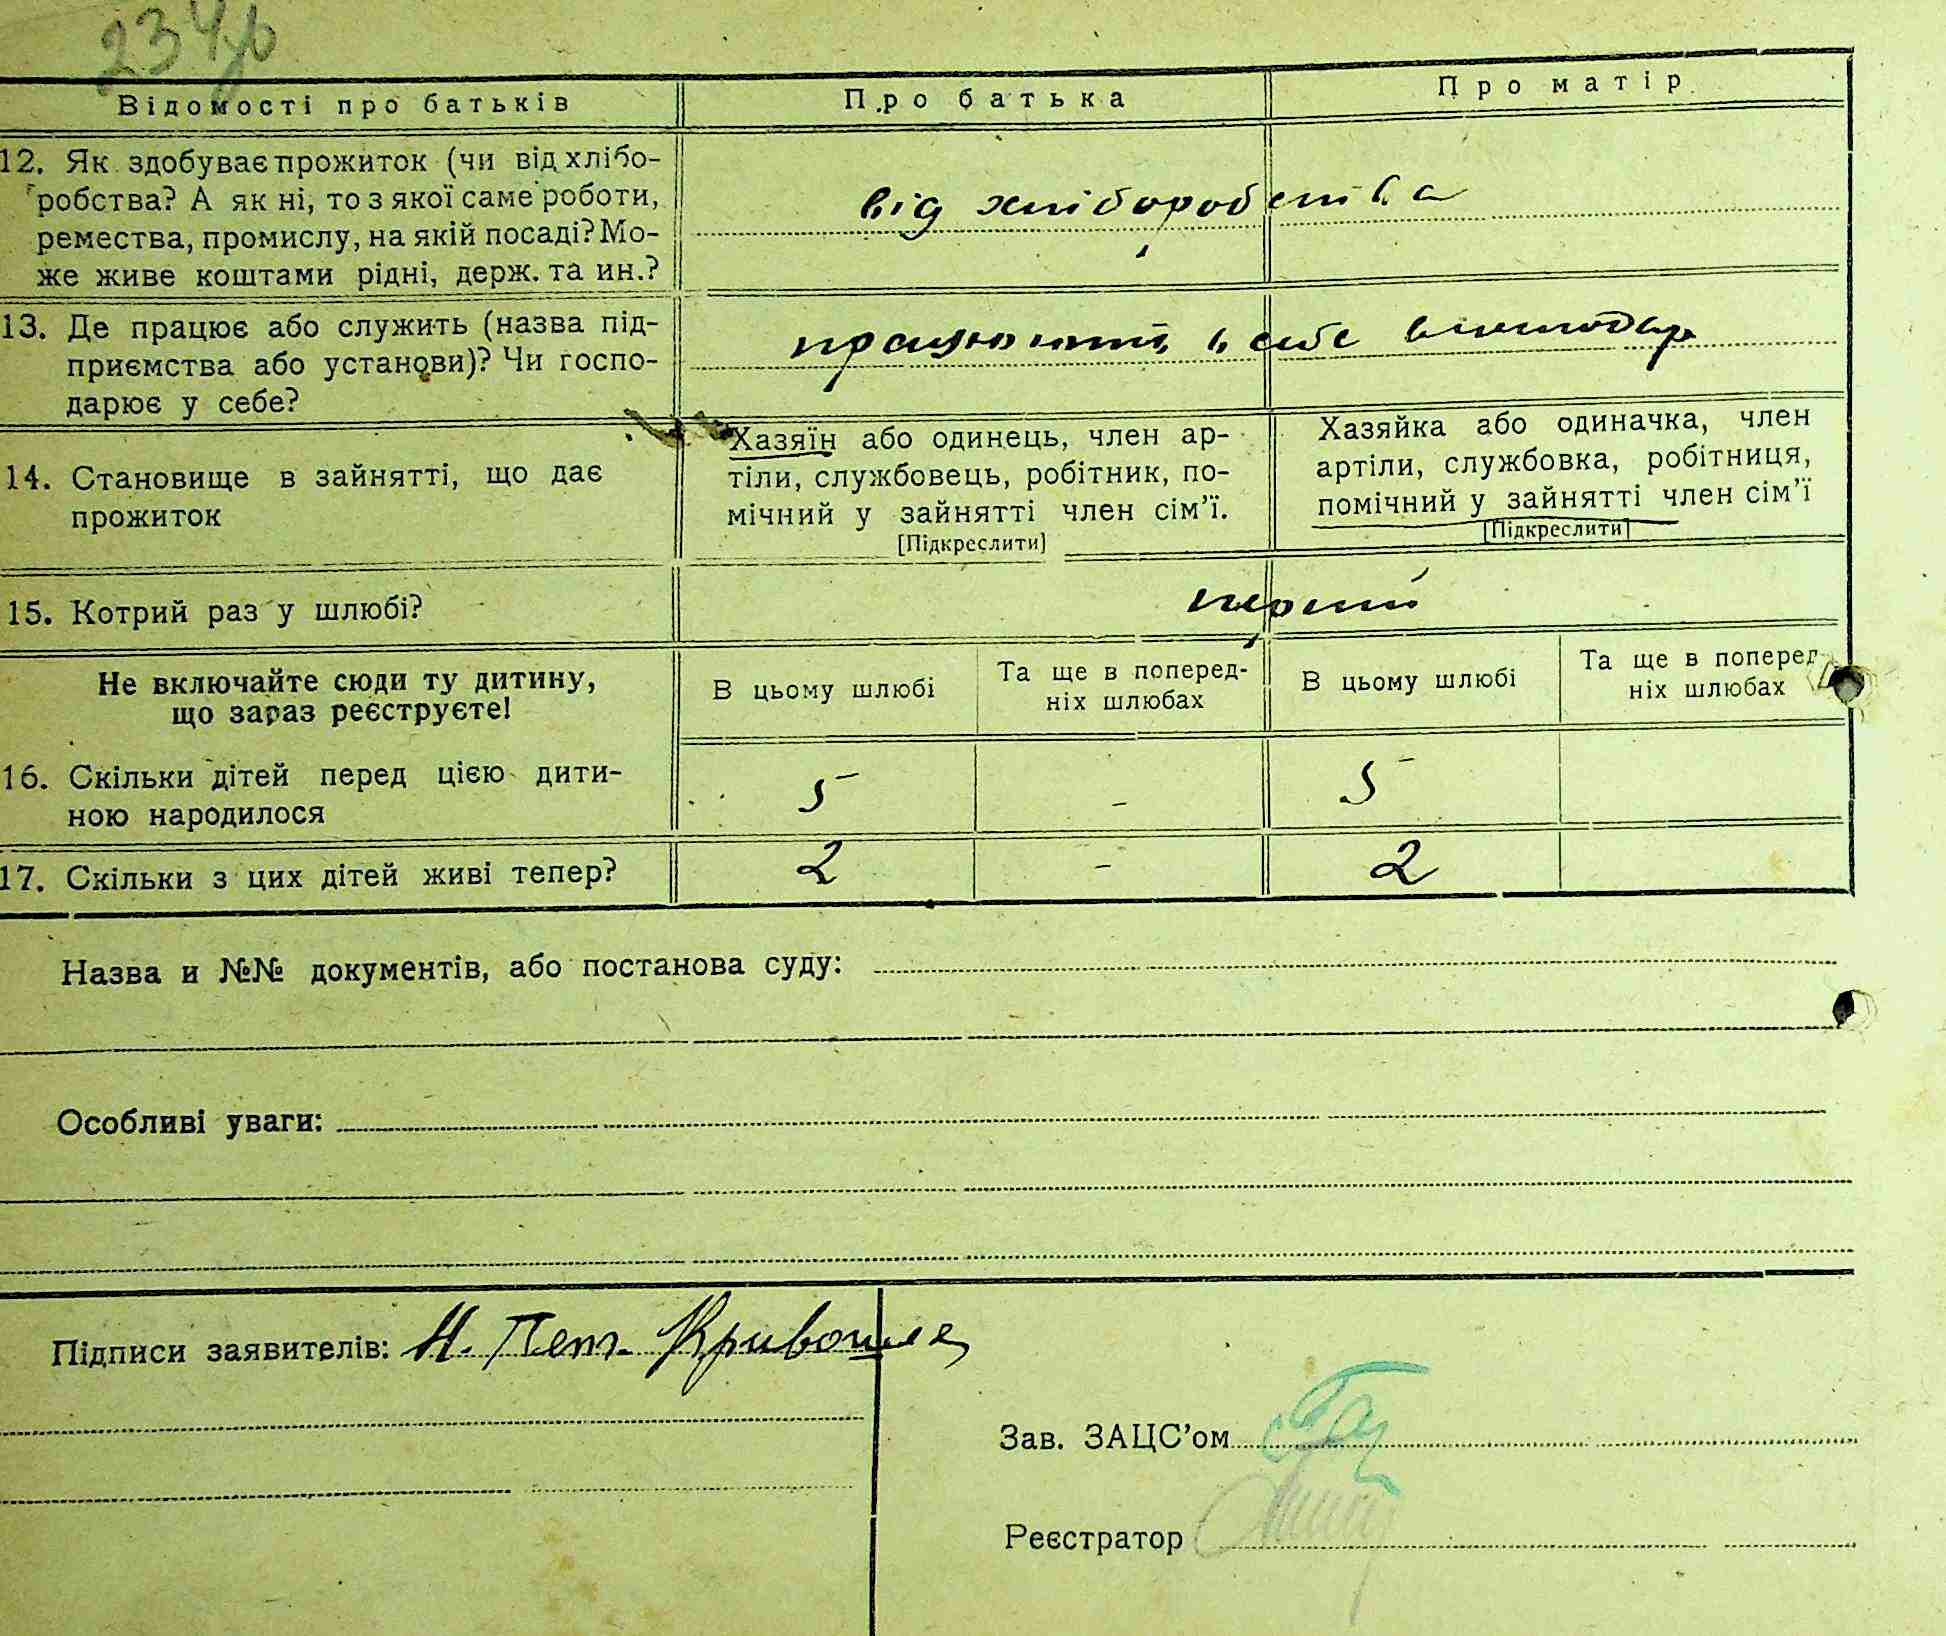 234зв
Відомості про батьків
Про батька
Про матір
12. Як здобуває прожиток (чи від хлібо-
робства? А як ні, то з якої саме роботи,
ремества, промислу, на якій посаді? Мо-
же живе коштами рідні, держ. та ин.?
від хліборобства
13. Де працює або служить (назва під-
приємства або установи)? Чи госпо-
дарює у себе?
працюють в себе
14. Становище в зайнятті, що дає
прожиток
Хазяїн або одинець, член ар-
тіли, службовець, робітник, по-
мічний у зайнятті член сім’ї.
[Підкреслити]
Хазяйка або одиначка, член
артіли, службовка, робітниця,
помічний у зайнятті член сім’ї
[Підкреслити]
15. Котрий раз у шлюбі?
перший
Не включайте сюди ту дитину,
що зараз реєструєте!
В цьому шлюбі
Та ще в поперед-
ніх шлюбах
В цьому шлюбі
Та ще в поперед-
ніх шлюбах
16. Скільки дітей перед цією дити-
ною народилося
5 - 5
17. Скільки з цих дітей живі тепер?
2 - 2
Назва и №№ документів, або постанова суду:
Особливі уваги:
Підписи заявителів: Н. Пет.
Зав. ЗАЦС’ом
Реєстратор